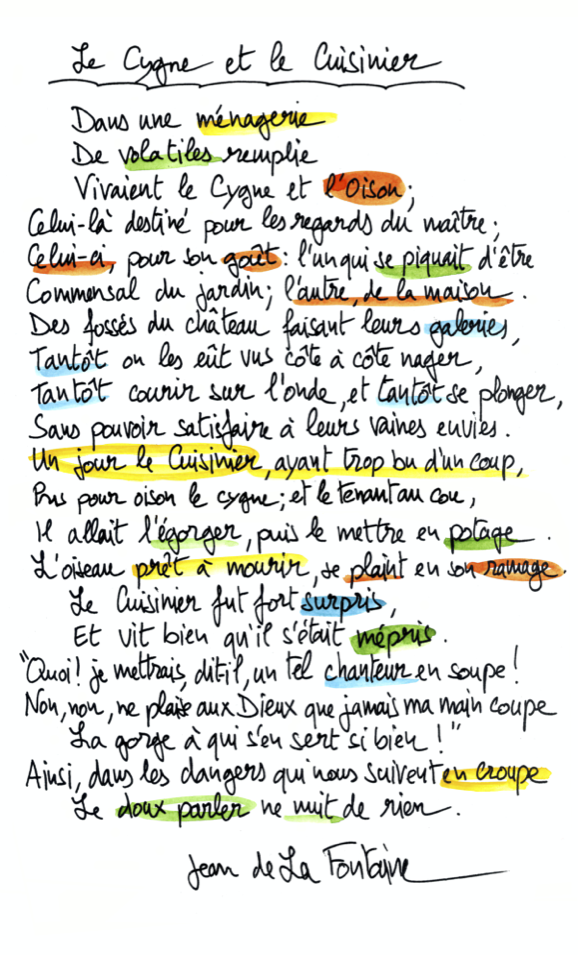 Le Cygne et le Cuisinier
Dans une ménagerie
De volatiles remplie
Vivaient le Cygne et l'Oison ;
Celui-là destiné pour les regards du maître ;
Celui-ci, pour son goût : l'un qui se piquait d'être
Commensal du jardin ; l'autre, de la maison .
Des fossés du château faisant leurs galeries,
Tantôt on les eût vus côte à côte nager,
Tantôt courir sur l'onde, et tantôt se plonger,
Sans pouvoir satisfaire à leurs vaines envies .
Un jour le Cuisinier, ayant trop bu d'un coup,
Pris pour oison le cygne ; et le tenant au cou,
Il allait l'égorger, puis le mettre en potage .
L'oiseau prêt à mourir, se plaint en son ramage .
Le Cuisinier fut fort surpris,
Et vit bien qu'il s'était mépris .
"Quoi ! je mettrais, dit-il, un tel chanteur en soupe !
Non, non, ne plaise aux Dieux que jamais ma main coupe
La gorge à qui s'en sert si bien !"
Ainsi, dans les dangers qui nous suivent en croupe
Le doux parler ne nuit de rien .
Jean de La Fontaine